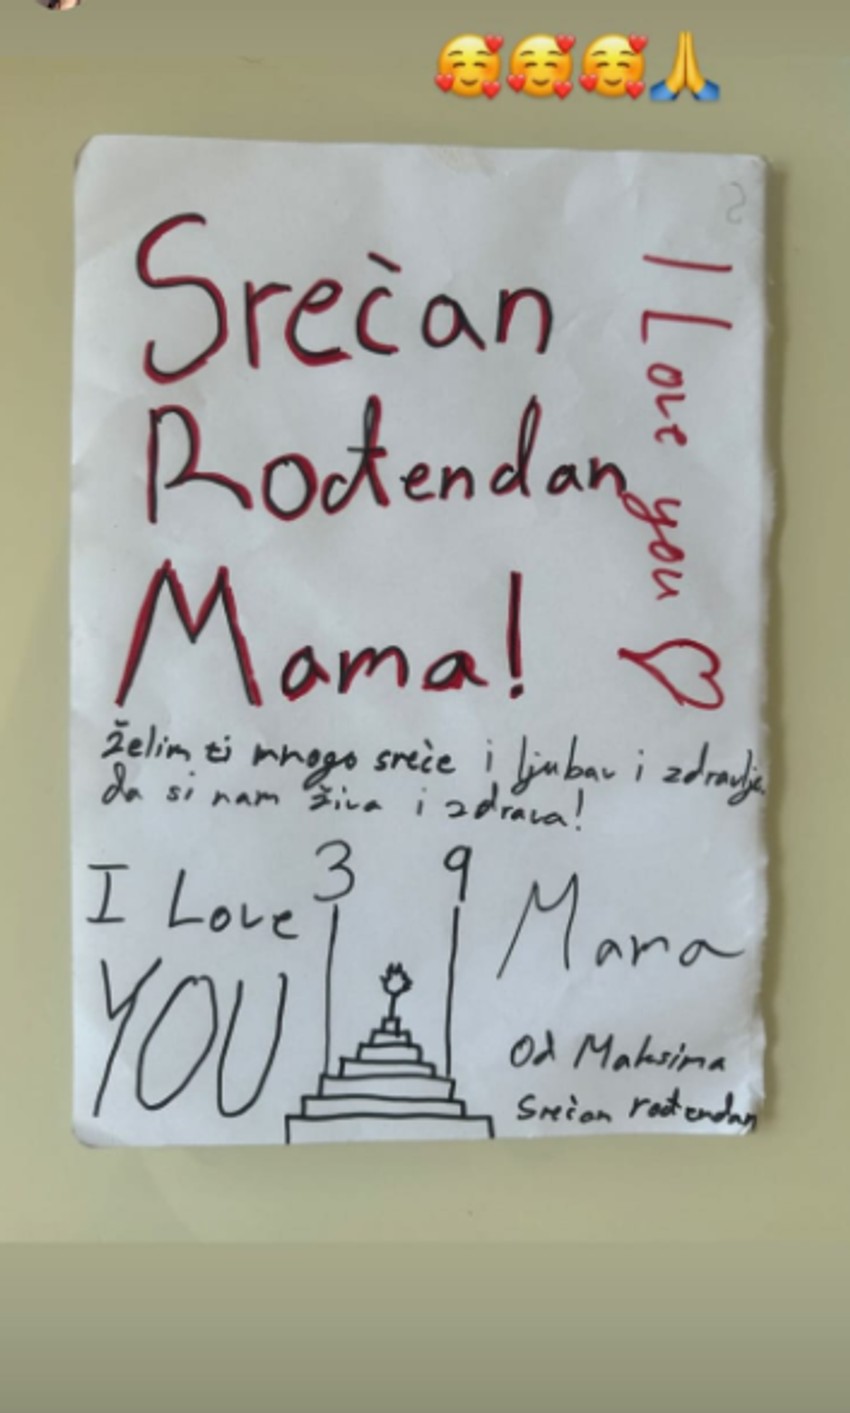 Srećan
Rođendan
Mama!
I Love you
želim ti mnogo sreće i ljubav i zdravlje
da si nam živa i zdrava!
I Love
YOU
3 9
Mama
Od Maksima
Srećan rođendan